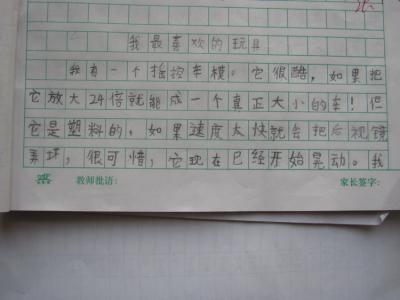 我最喜欢的玩具
我有一个摇控车模。它很酷，如果把
它放大24倍就能成一个真正大小的车！但
它是塑料的，如果速度太快就会把后视镜
弄坏，很可惜，它现在已经开始晃动。我
教师批语： 家长签字：